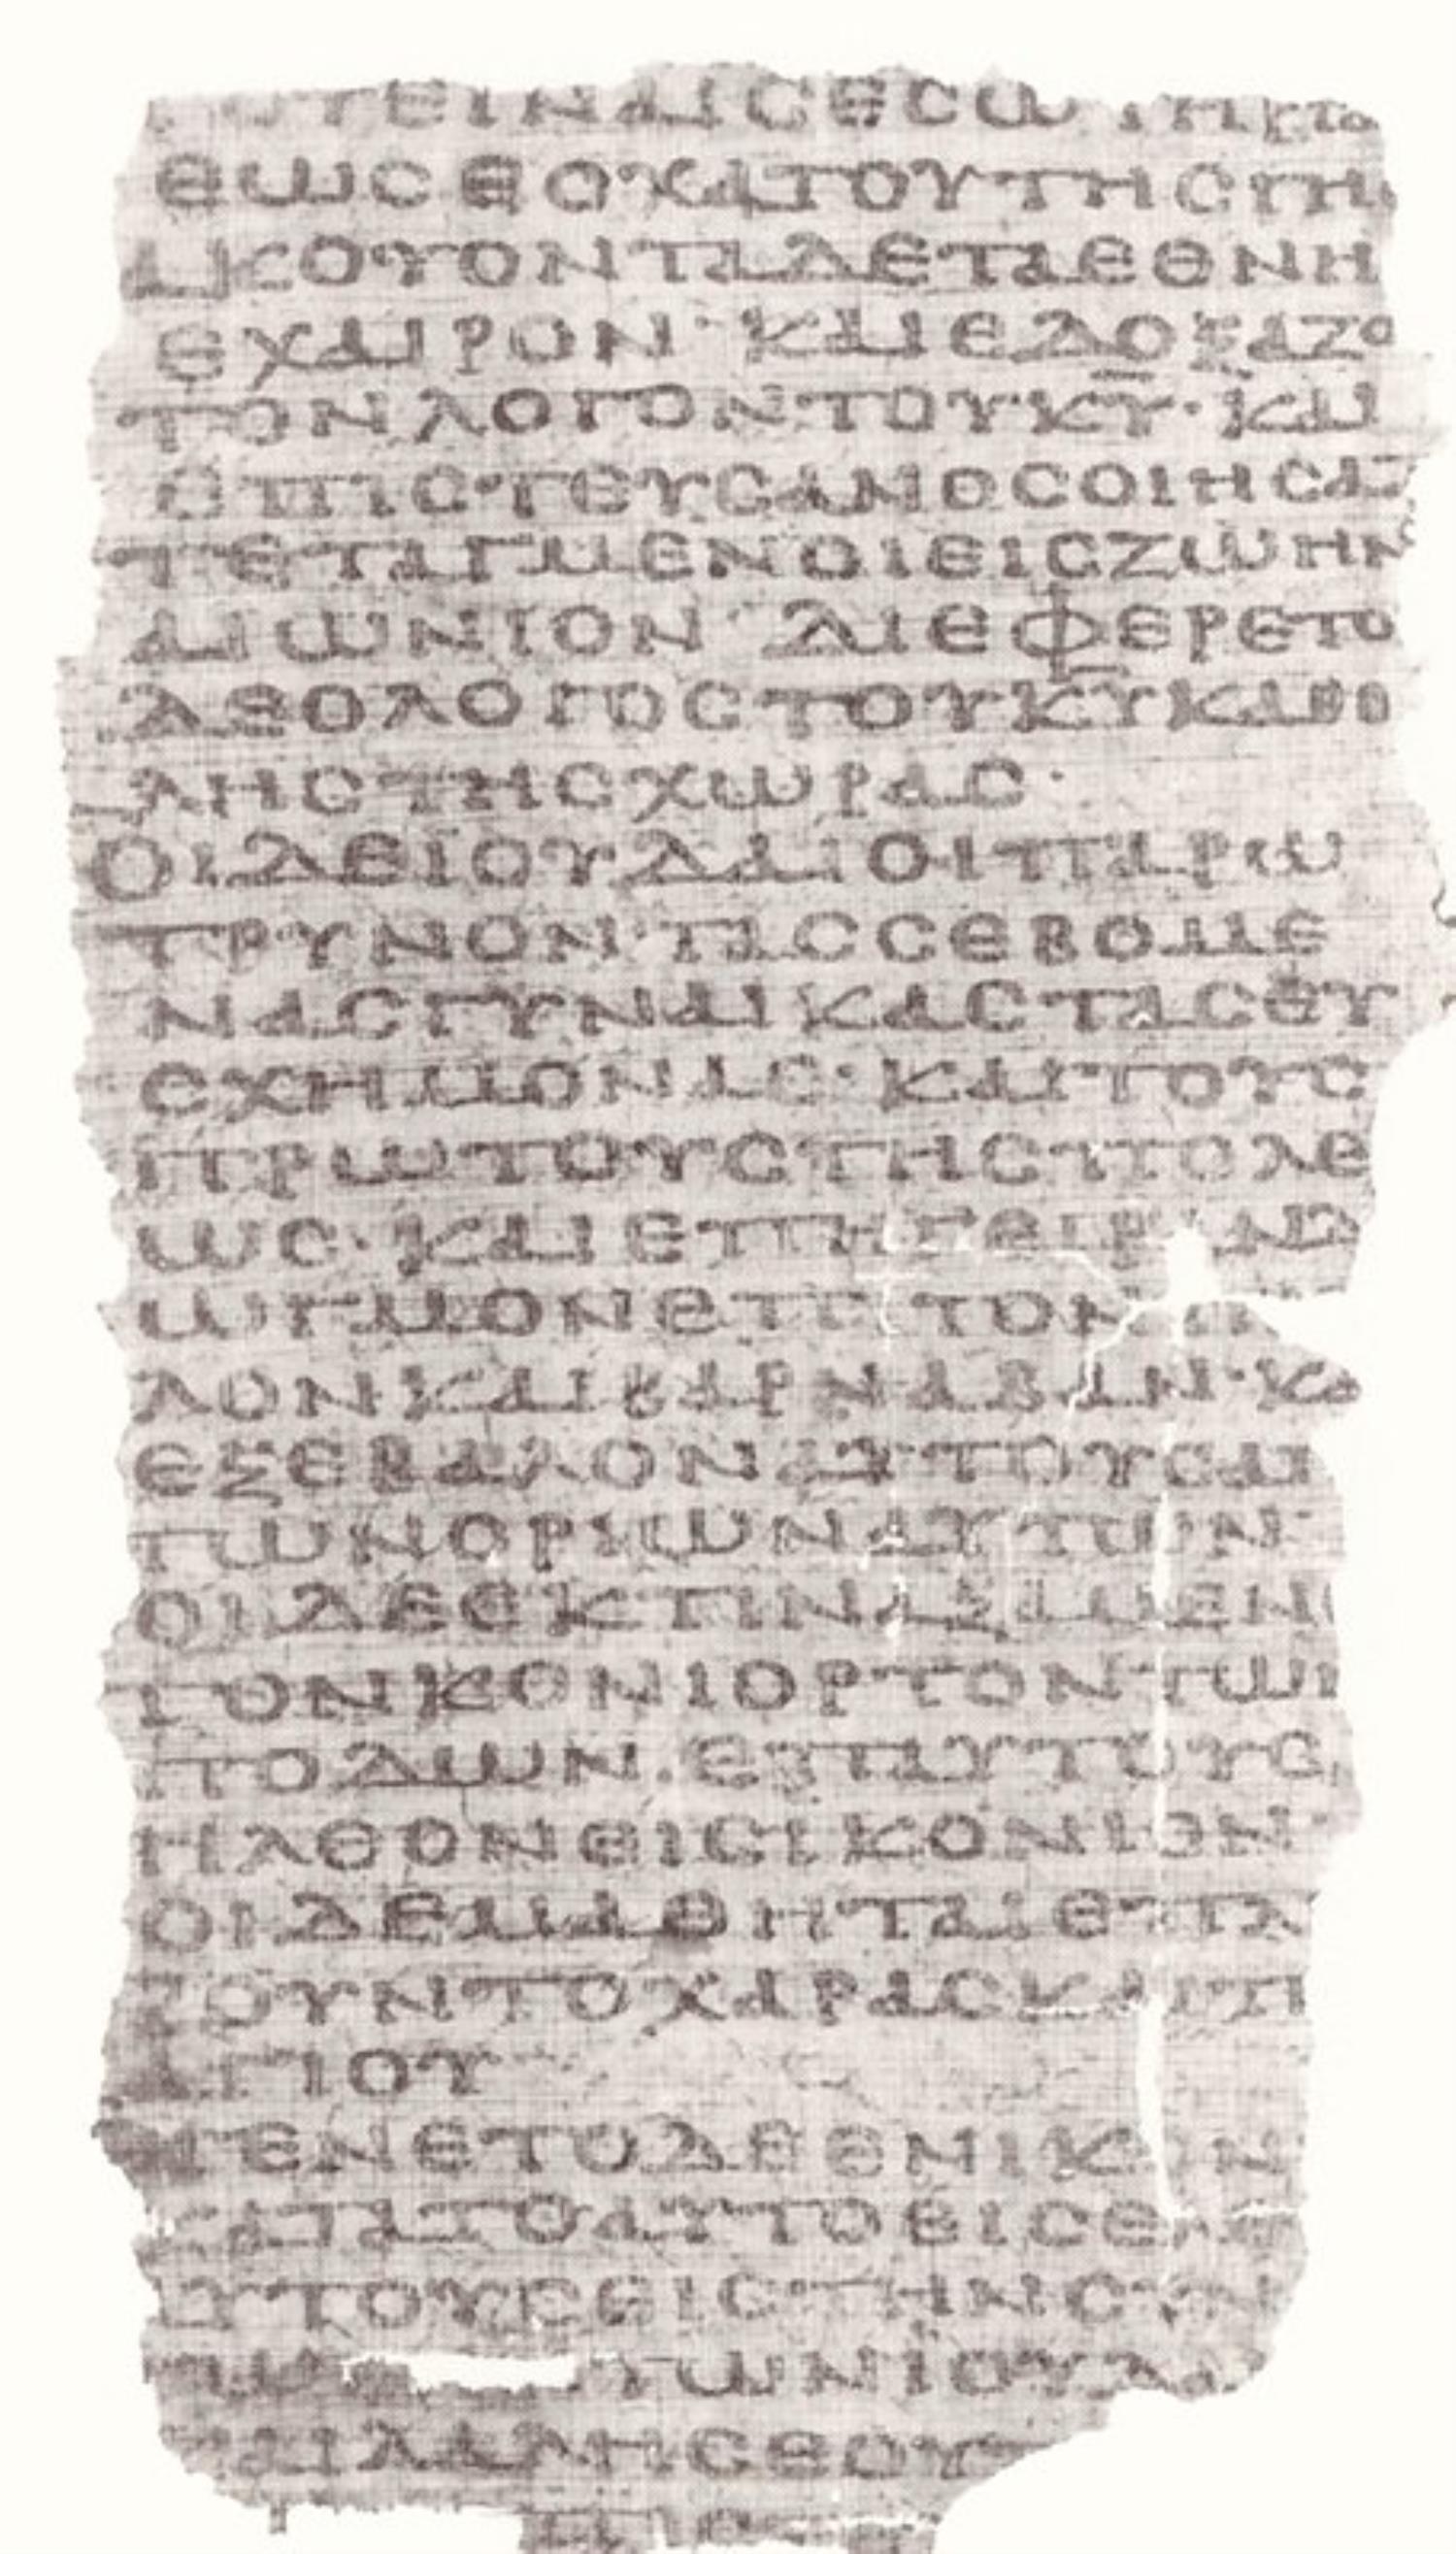 ΤΕΙΝΑΙCΕCω
ΕωCΕCΧΑΤΟΥΤΗCΓΗC
ΑΚΟΥΟΝΤΑΔΕΤΑΕΘΝΗ
ΕΧΑΙΡΟΝ· ΚΑΙΕΔΟΞΑΖΟ
ΤΟΝΛΟΓΟΝΤΟΥΚ̅Υ̅· ΚΑΙ
ΕΠΙCΤΕΥCΑΝΟCΟΙΗCΑ̅
ΤΕΤΑΓΜΕΝΟΙΕΙCΖωΗΝ
ΑΙωΝΙΟΝ· ΔΙΕΦΕΡΕΤΟ
ΔΕΟΛΟΓΟCΤΟΥΚ̅Υ̅ΚΑΘΟ
ΛΗCΤΗCΧωΡΑC·
ΟΙΔΕΙΟΥΔΑΙΟΙΠΑΡω
ΤΡΥΝΟΝ·ΤΑCCΕΒΟΜΕ
ΝΑCΓΥΝΑΙΚΑCΤΑCΕΥ
CΧΗΜΟΝΑC· ΚΑΙΤΟΥC
ΠΡωΤΟΥCΤΗCΠΟΛΕ
ωC·ΚΑΙΕΠΗΓΕΙΡΑΝΔΙ
ωΓΜΟΝΕΠΙΤΟΝ
ΛΟΝΚΑΙΒΑΡΝΑΒΑΝ·ΚΑΙ
ΕΞΕΒΑΛΟΝΑΥΤΟΥCΑΠ
ΤωΝΟΡΙωΝΑΥΤωΝ·
ΟΙΔΕΕΚΤΙΝΑΞΑΜΕΝΟΙ
ΤΟΝΚΟΝΙΟΡΤΟΝΤωΝ
ΠΟΔωΝ·ΕΠΑΥΤΟΥC
ΗΛΘΟΝΕΙCΙΚΟΝΙΟΝ·
ΟΙΔΕΜΑΘΗΤΑΙΕΠΛ
ΡΟΥΝΤΟΧΑΡΑCΚΑΙΠ
ΑΓΙΟΥ
ΕΓΕΝΕΤΟΔΕΕΝΙΚΟΝ
ΚΑΤΑΤΟΑΥΤΟΕΙCΕΛΘ
ΑΥΤΟΥCΕΙCΤΗΝCΥΝ
ΤωΝΙΟΥΔΑ
ΚΑΙΛΑΛΗCΕΟΥ